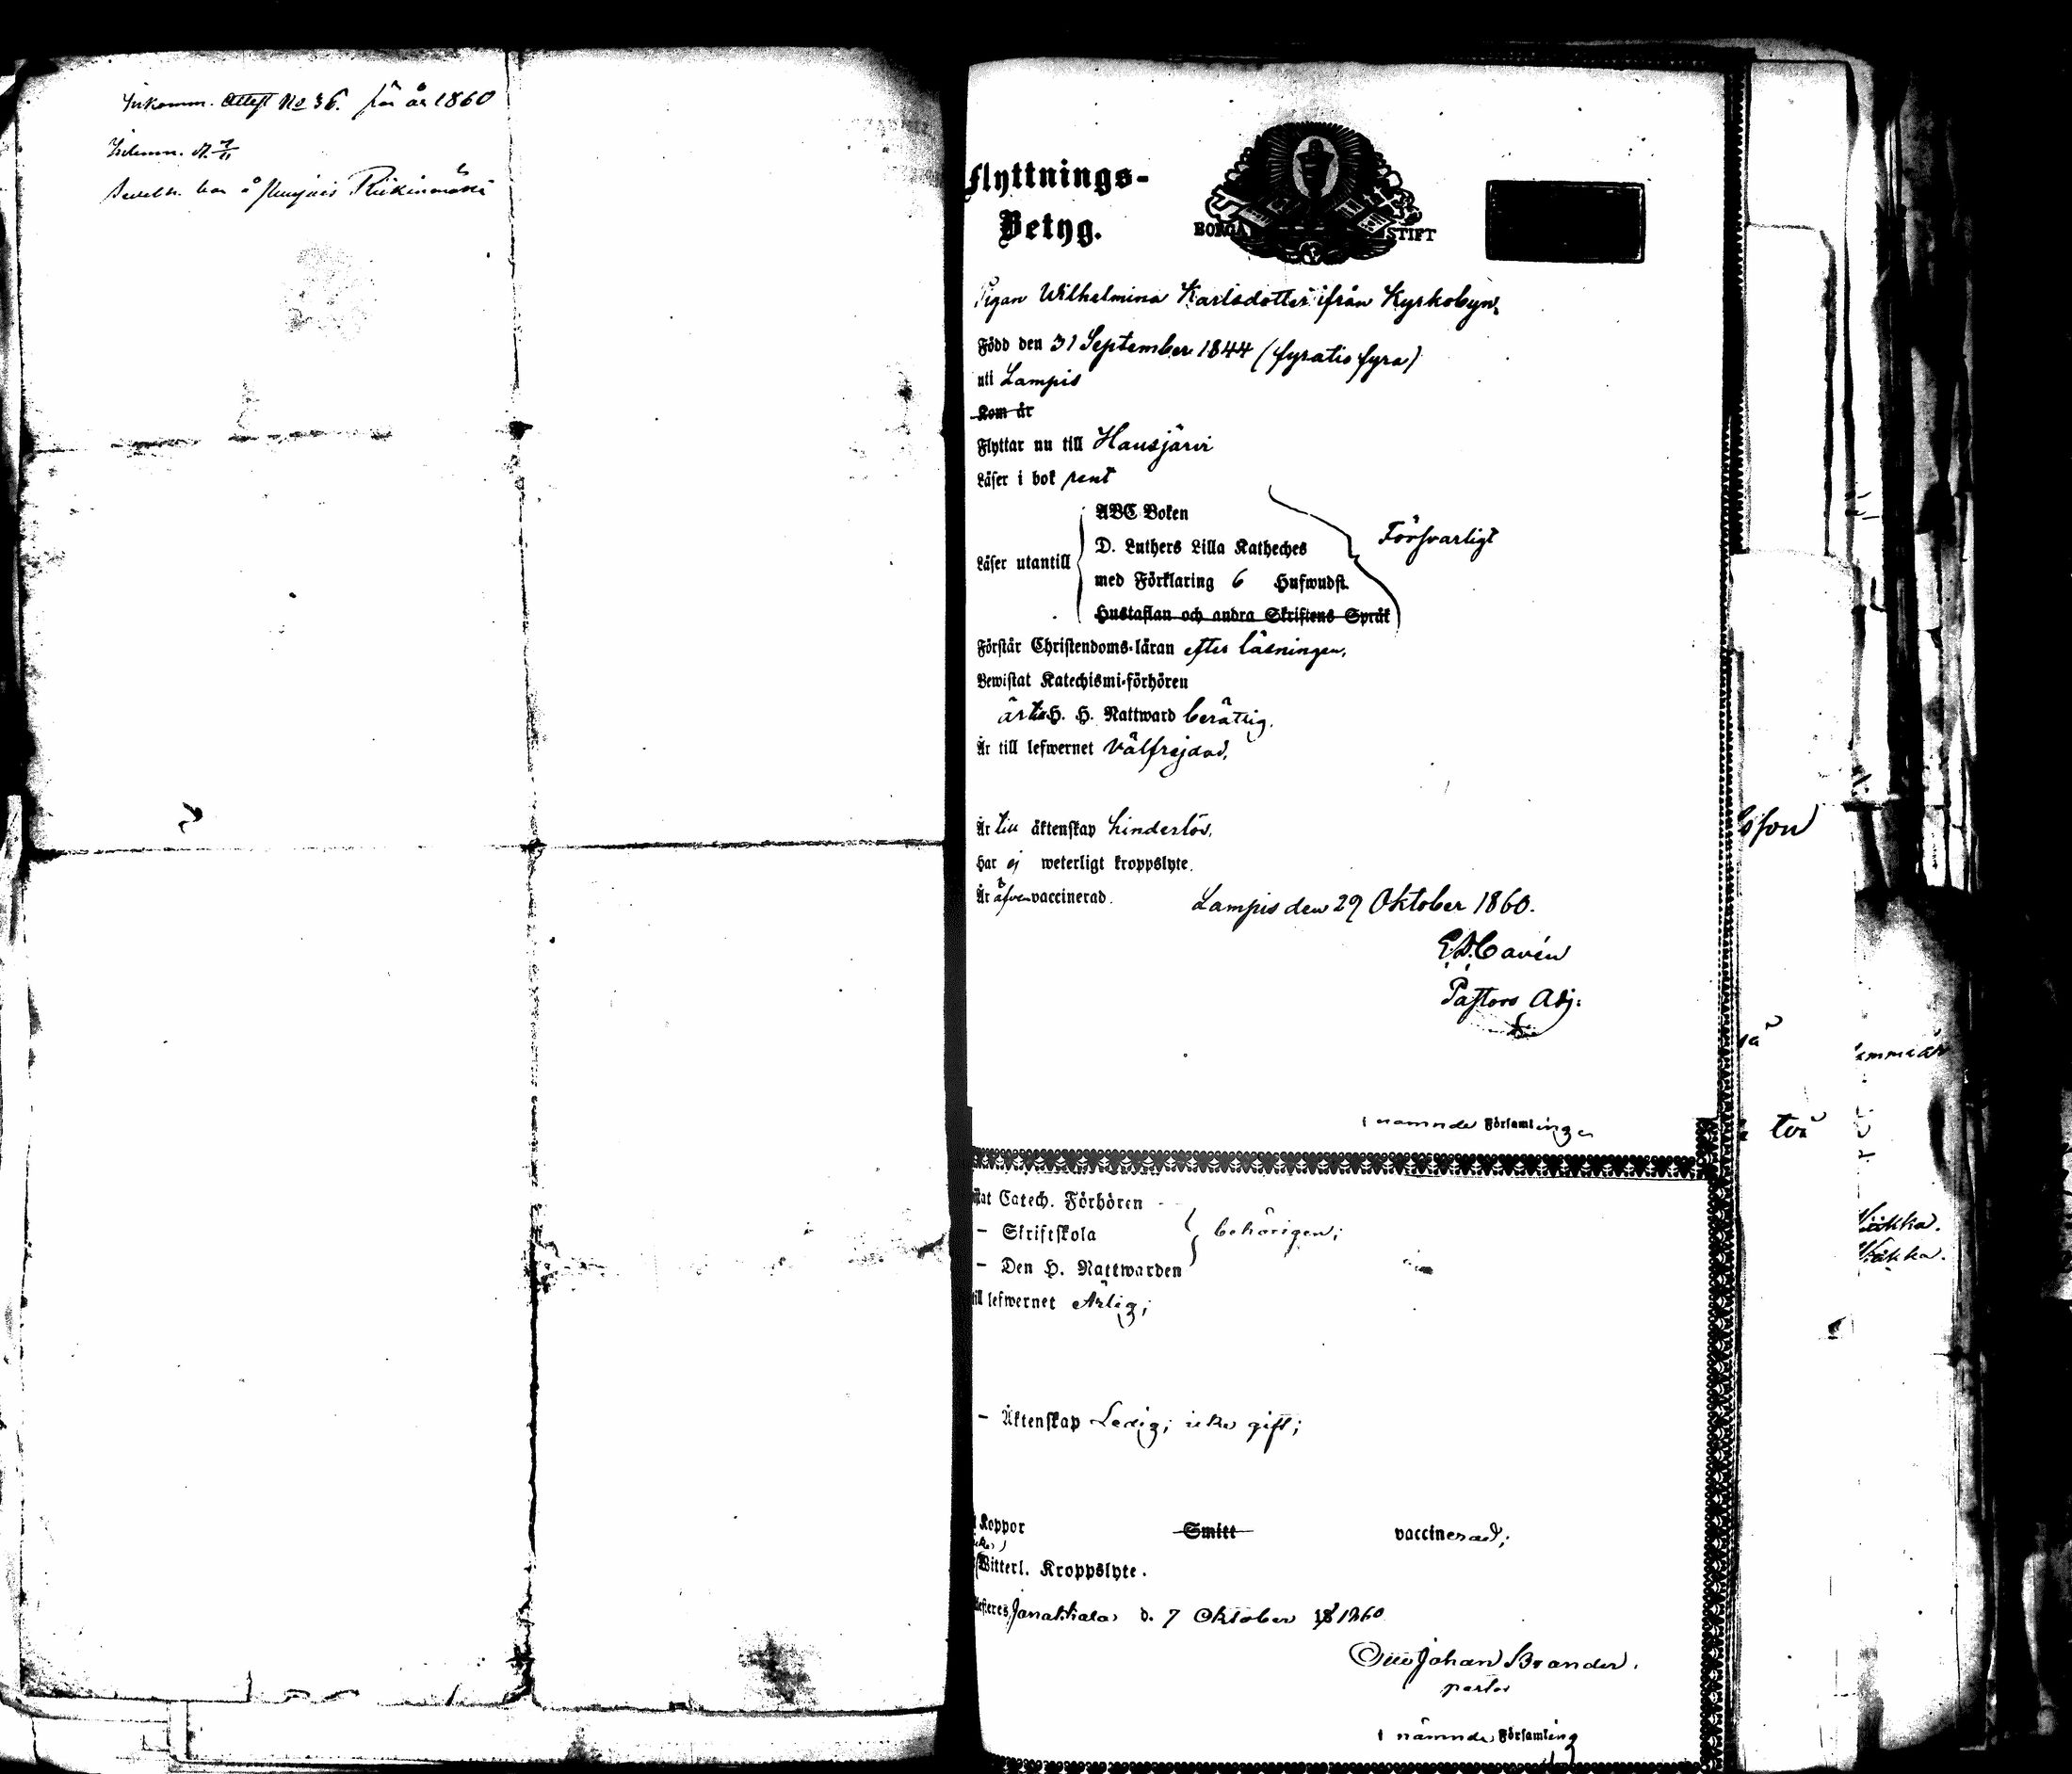 Inkomm. Attest No 36. för år 1860
Flyttnings-
Betyg.
BORGÅ STIFT
Pigan Wilhelmina Karlsdotter ifrån Kyrkobyn,
Född den 31 September 1844 (fyratio fyra)
uti Lampis
Kom år
Flyttar nu till Hausjärvi
Läser i bok rent
Läser utantill
ABC Boken
D. Luthers Lilla Katheches
med Förklaring 6 Hufwudst.
Hustaflan och andra Skriftens Språk
Försvarligt
Förstår Christendoms-läran efter läsningen,
Bewistat Katechismi-förhören
är till H. H. Nattward berättig.
Är till lefwernet välfrejdad,
Är till äktenskap hinderlös,
Har ej weterligt kroppslyte.
Är äfven vaccinerad.
Lampis den 29 Oktober 1860.
Cavén
Pastors Adj.
i nämnde Församlinge
Catech. Förhören
– Skriftskola
– Den H. Nattwarden
behörigen;
lefwernet Ärlig;
– Äktenskap Ledig; icke gift;
Koppor Smitt vaccinerad;
Witterl. Kroppslyte.
Janakkala d. 7 Oktober 18 1860
Otto Johan Brander.
i nämnde Församling